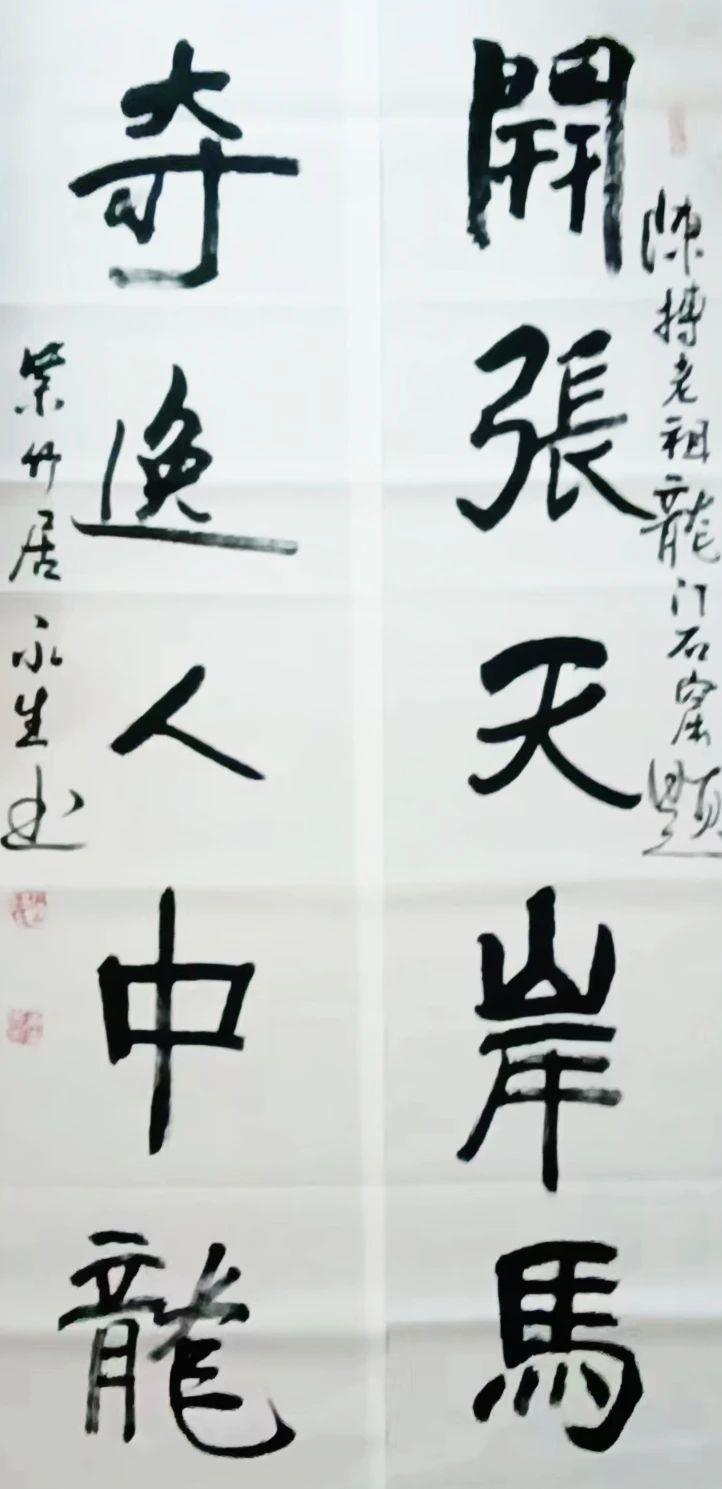 陳搏老祖龍门石窟題
開張天岸馬
奇逸人中龍
紫竹居永生书